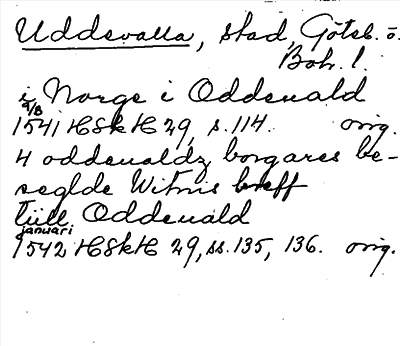 Uddevalla, stad, Göteb. o.
Boh. l.
i Norge i Oddeuald
9/8
1541 HSkH 29, s. 114. orig.
4 oddeualdz borgares be-
seglde Witnis breff
tiill Oddeuald
januari
1542 HSkH 29, ss. 135, 136. orig.